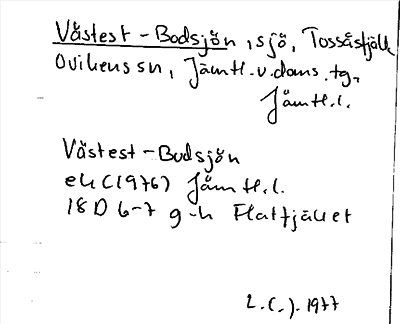 Västest-Bodsjön, sjö, Tossåsfjäll
Ovikens sn, Jämtl.v.doms.tg,
Jämtl.l.
Västest-Budsjön
ek (1976) Jämtl.l.
18D 6-7 g-h Flatfjället
L.C.J. 1977